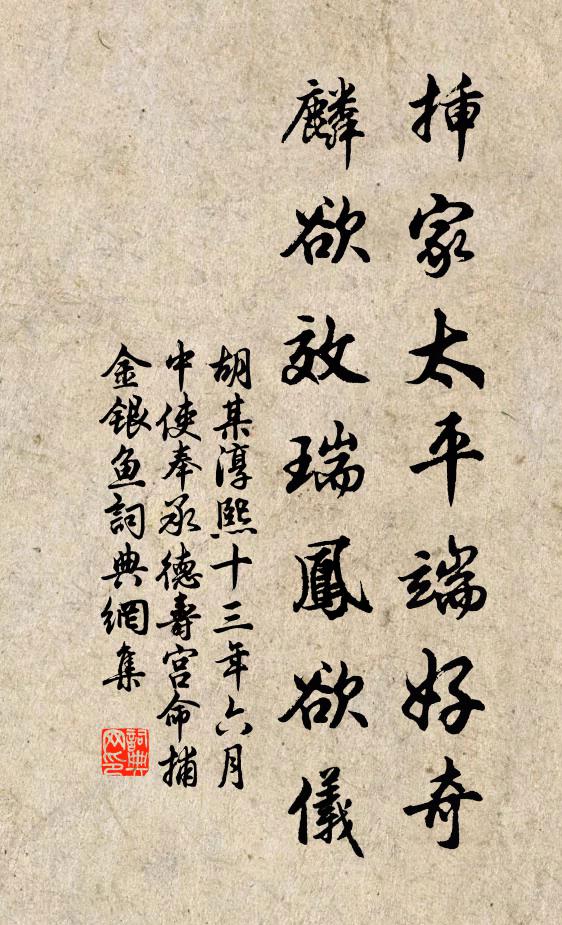 挿家太平端好奇
麟欲效瑞鳳欲儀
胡某淳熙十三年六月
中使奉承德壽宮命捕
金銀魚詞典網集
詞典
网印